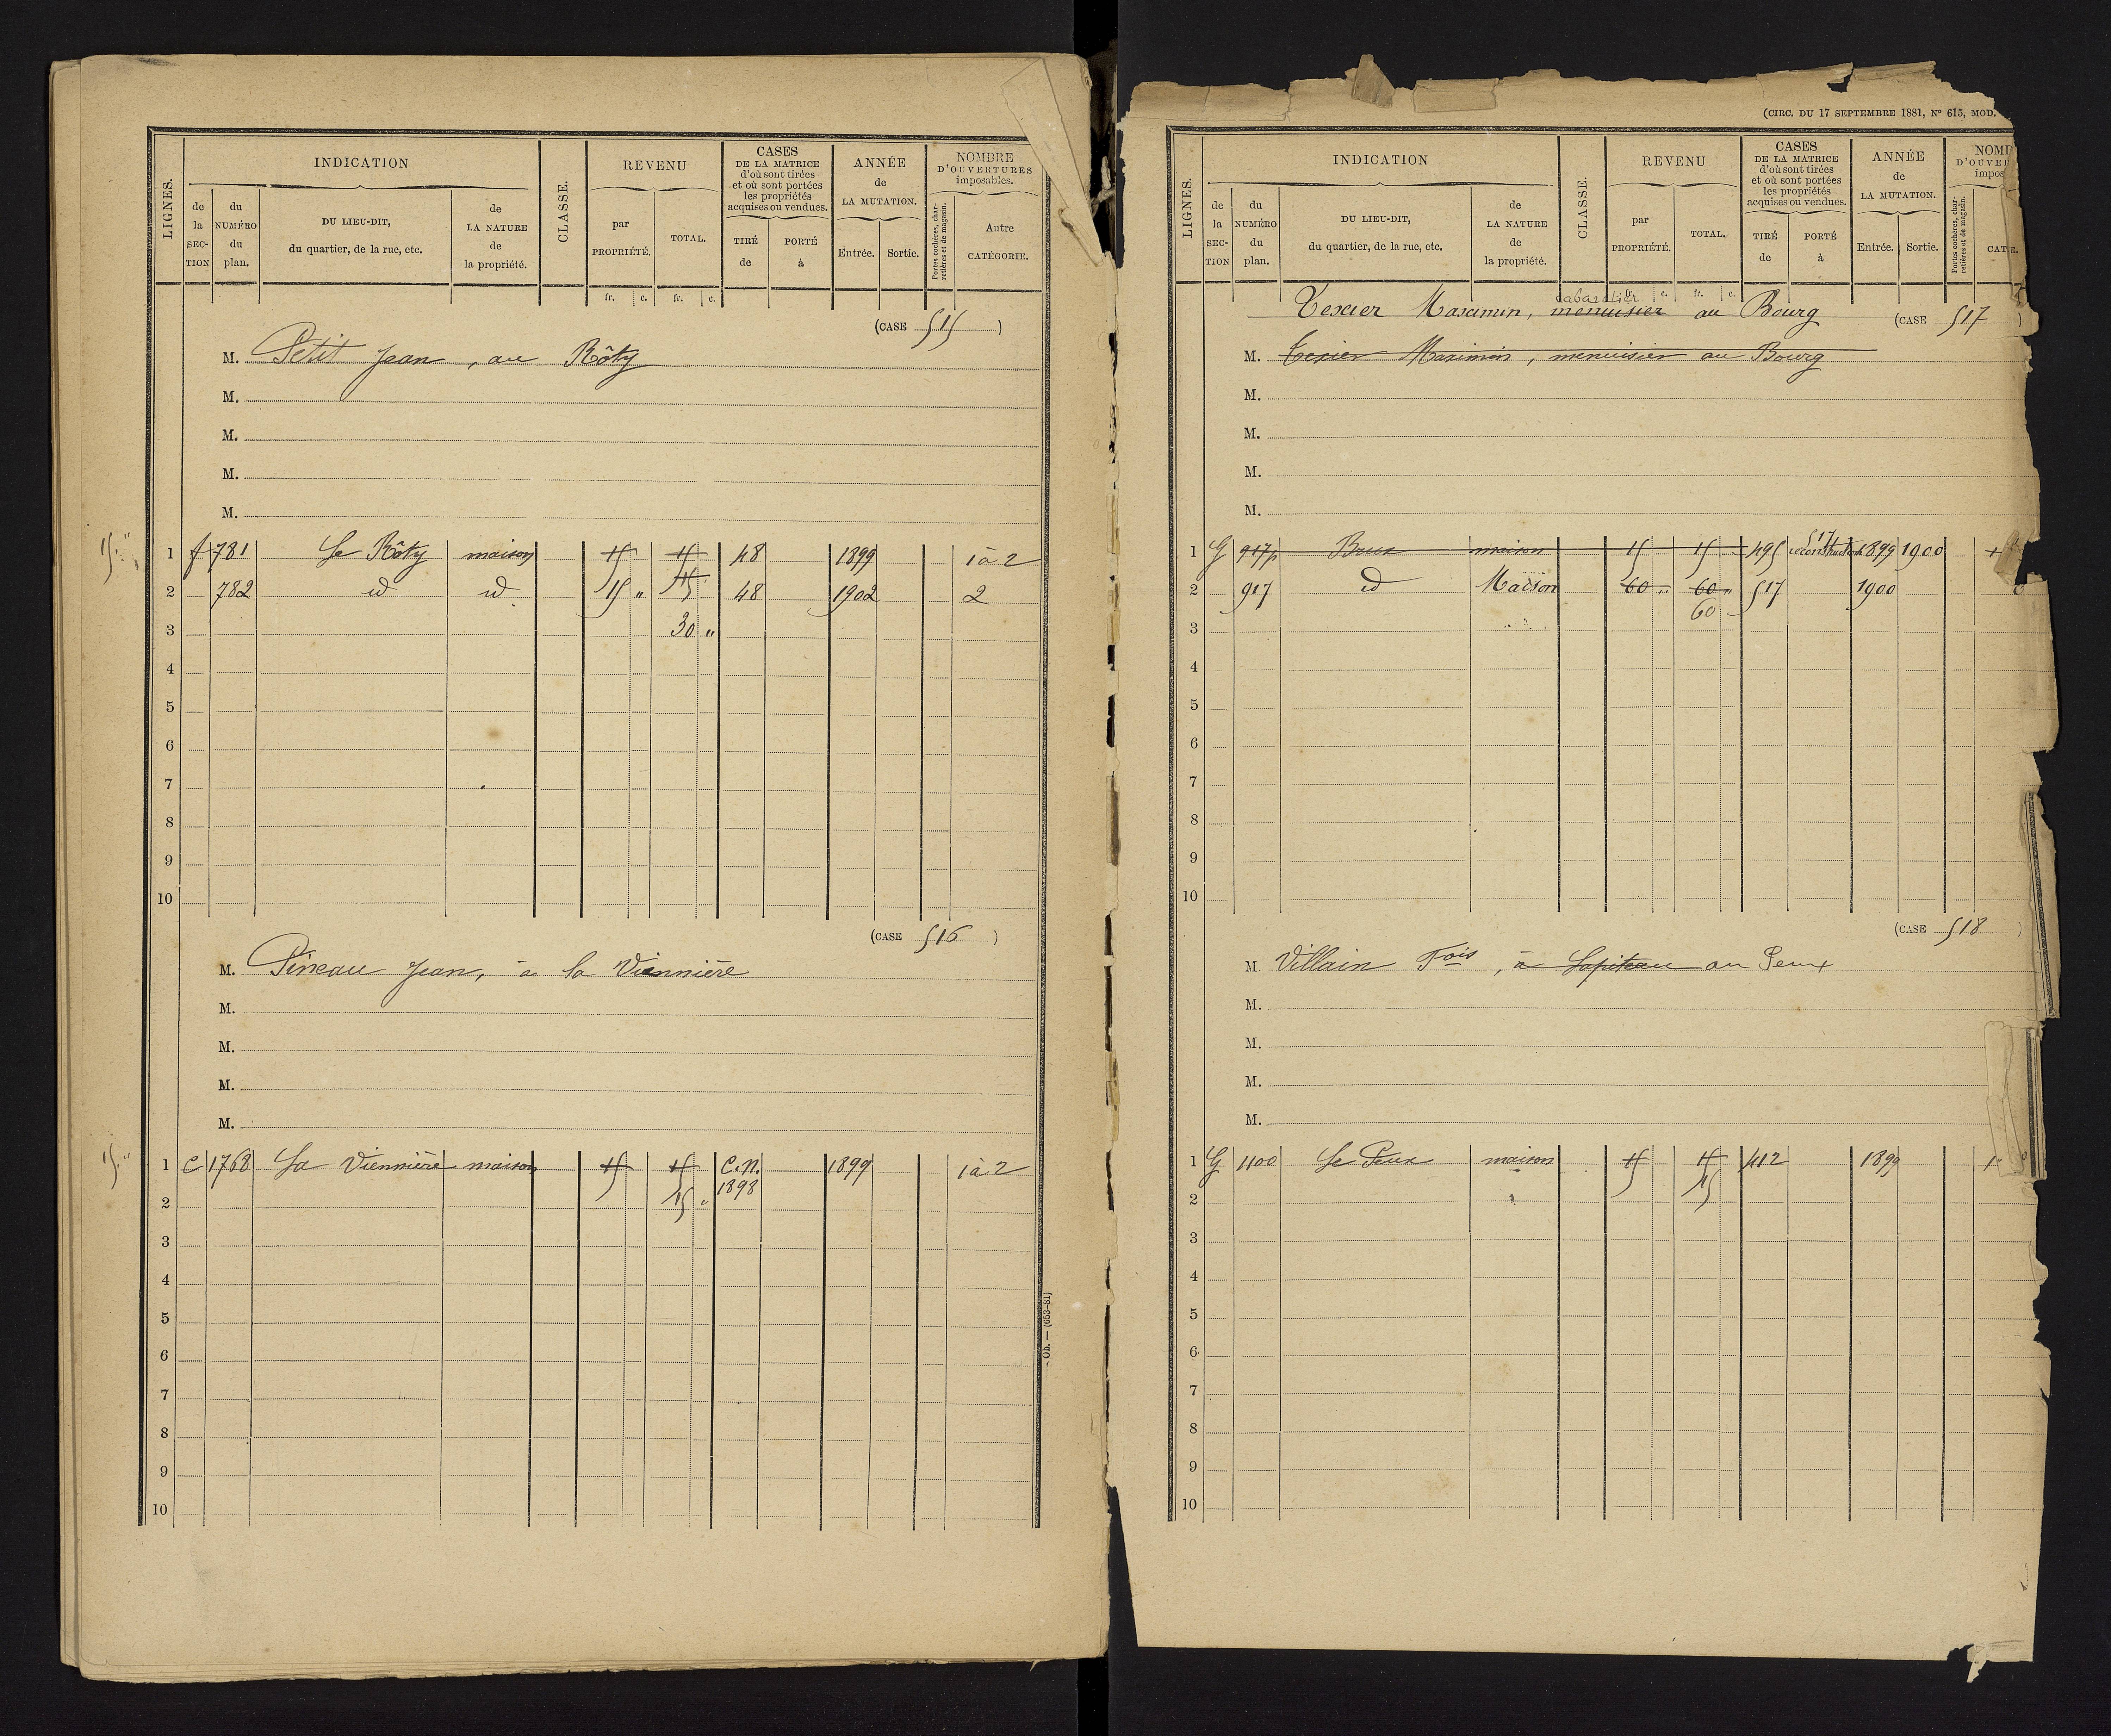 LIGNES.
INDICATION
de la SEC-TION
du NUMÉRO du plan.
DU LIEU-DIT, du quartier, de la rue, etc.
de LA NATURE de la propriété.
CLASSE.
REVENU
par PROPRIÉTÉ.
TOTAL.
CASES DE LA MATRICE d'où sont tirées et où sont portées les propriétés acquises ou vendues.
TIRÉ de
PORTÉ à
ANNÉE de LA MUTATION.
Entrée.
Sortie.
NOMBRE D'OUVERTURES imposables.
Portes cochères, charretières et de magasin.
Autre CATÉGORIE.
fr. c. fr. c.
(CASE 515)
M. Petit Jean, au Rôty
M.
M.
M.
M.
15 "
1 f 781 Le Rôty maison 15 15 48 1899 1 à 2
2 782 id id 15 " 15 48 1902 2
3 30 "
4
5
6
7
8
9
10
(CASE 516)
M. Pineau Jean, à la Viennière
M.
M.
M.
M.
15 "
1 C 1768 La Viennière maison 15 15 C.n. 1899 1 à 2
2 15 " 1898
3
4
5
6
7
8
9
10
- Ob. — (653-81)
(CIRC. DU 17 SEPTEMBRE 1881, N° 615, MOD.
LIGNES.
INDICATION
de la SEC-TION
du NUMÉRO du plan.
DU LIEU-DIT, du quartier, de la rue, etc.
de LA NATURE de la propriété.
CLASSE.
REVENU
par PROPRIÉTÉ.
TOTAL.
CASES DE LA MATRICE d'où sont tirées et où sont portées les propriétés acquises ou vendues.
TIRÉ de
PORTÉ à
ANNÉE de LA MUTATION.
Entrée.
Sortie.
NOMB
D'OUVER
impos
Portes cochères, charretières et de magasin.
CAT
fr. c. fr. c.
cabaretier
Texier Maximin, menuisier au Bourg (CASE 517)
M. Texier Maximin, menuisier au Bourg
M.
M.
M.
M.
517
1 G 917p Brux maison 15 15 495 reconstruction 1899 1900
2 917 id Maison 60 " 60 " 517 1900
60
3
4
5
6
7
8
9
10
(CASE 518)
M Villain Fois, à Lapiteau au Peux
M.
M.
M.
M.
1 G 1100 Le Peux maison 15 15 412 1899 1
2 15
3
4
5
6
7
8
9
10